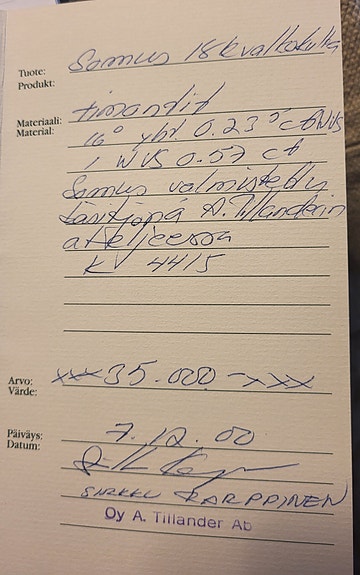 Tuote: Sormus 18k valkokulta
Produkt:
Materiaali: timantit
Material: 16° yht 0.23 ct W/VS
1 W VS 0.57 ct
Sormus valmistettu
käsityönä A. Tillanderin
ateljeessa
KV 4415
Arvo: xxx 35.000 -xxx
Värde:
Päiväys: 7.12.00
Datum:
SIRKKU KARPPINEN
Oy A. Tillander Ab